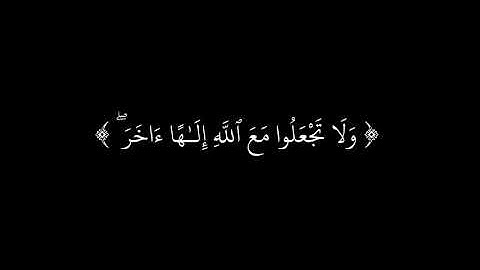 ﴿ وَلَا تَجْعَلُوا مَعَ ٱللَّهِ إِلَـٰهًا ءَاخَرَ ۖ ﴾